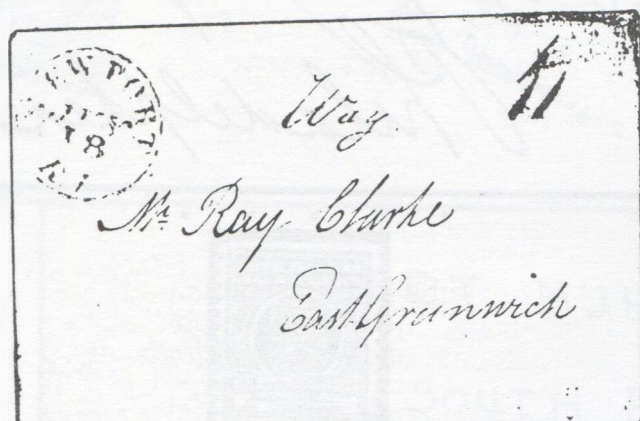 NEWPORT
18
R.I
11
Way
Mr. Ray Clarke
East Greenwich